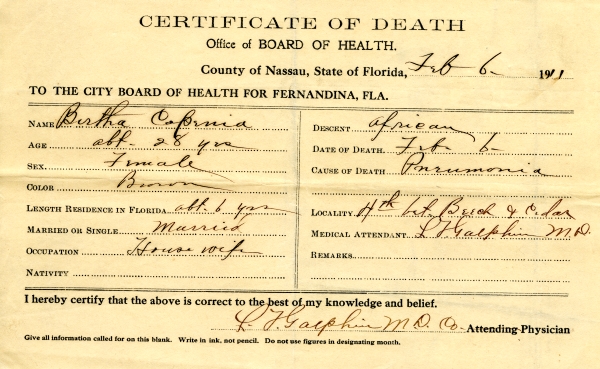 CERTIFICATE OF DEATH
Office of BOARD OF HEALTH.
County of Nassau, State of Florida, Feb 6 - 1911
TO THE CITY BOARD OF HEALTH FOR FERNANDINA, FLA.
NAME Bertha
AGE abt. 28 yrs
SEX. Female
COLOR Brown
LENGTH RESIDENCE IN FLORIDA abt. 6 yrs
MARRIED OR SINGLE Married
OCCUPATION Housewife
NATIVITY
DESCENT african
DATE OF DEATH. Feb 6-
CAUSE OF DEATH Pneumonia
LOCALITY 4th bet. Beech & Cedar
MEDICAL ATTENDANT. Galphin M.D.
REMARKS
I hereby certify that the above is correct to the best of my knowledge and belief.
Galphin M.D. Co. Attending Physician
Give all information called for on this blank. Write in ink, not pencil. Do not use figures in designating month.